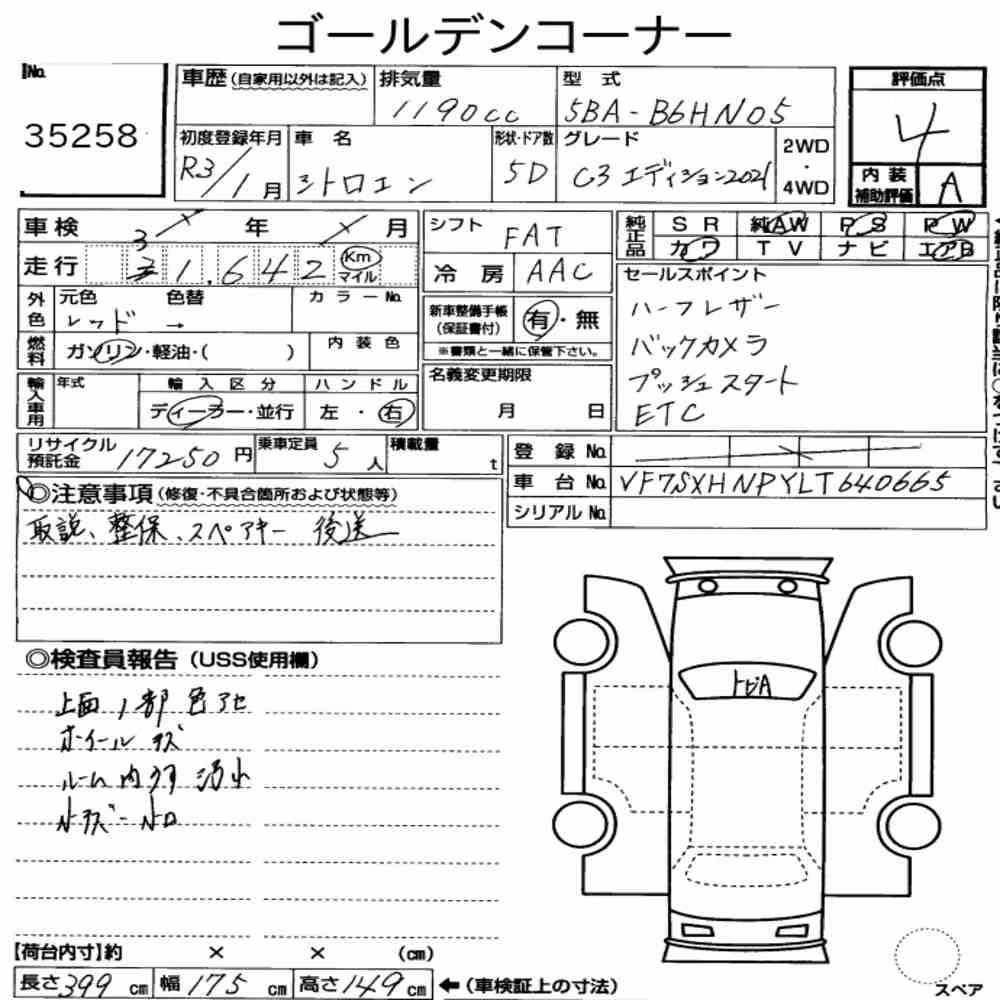 ゴールデンコーナー
No.
35258
車歴(自家用以外は記入)
排気量 1190cc
型式 5BA-B6HN05
評価点 4
初度登録年月 R3/1月
車名 シトロエン
形状・ドア数 5D
グレード C3 エディション2021
2WD・4WD
内装補助評価 A
車検 年 月
走行 31,642 Km マイル
シフト FAT
冷房 AAC
純正品 SR 純AW PS PW
カワ TV ナビ エアB
外色 元色 色替 カラーNo.
レッド →
燃料 ガソリン・軽油・( )
内装色
新車整備手帳(保証書付) 有・無
※書類と一緒に保管下さい。
セールスポイント
ハーフレザー
バックカメラ
プッシュスタート
ETC
輸入車用 年式
輸入区分 ディーラー・並行
ハンドル 左・右
名義変更期限
月 日
リサイクル預託金 17250円
乗車定員 5人
積載量 t
登録No.
車台No. VF7SXHNPYLT640665
シリアルNo.
◎注意事項(修復・不具合箇所および状態等)
取説、整保、スペアキー 後送
◎検査員報告(USS使用欄)
上面1部色アセ
ホイールキズ
ルーム内ウス汚れ
トビA
【荷台内寸】約 × × (cm)
長さ399cm 幅175cm 高さ149cm ←(車検証上の寸法)
スペア